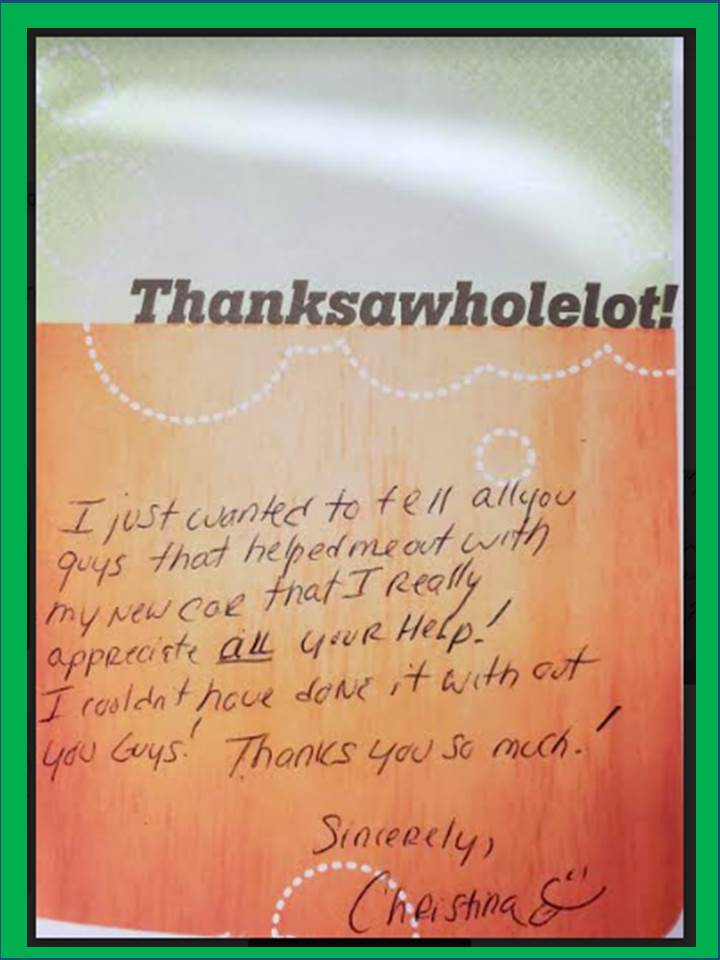 Thanksawholelot!
I just wanted to tell all you
guys that helped me out with
my new car that I Really
appreciate all your Help!
I couldn't have done it with out
you Guys! Thanks you so much!
Sincerely,
Christina